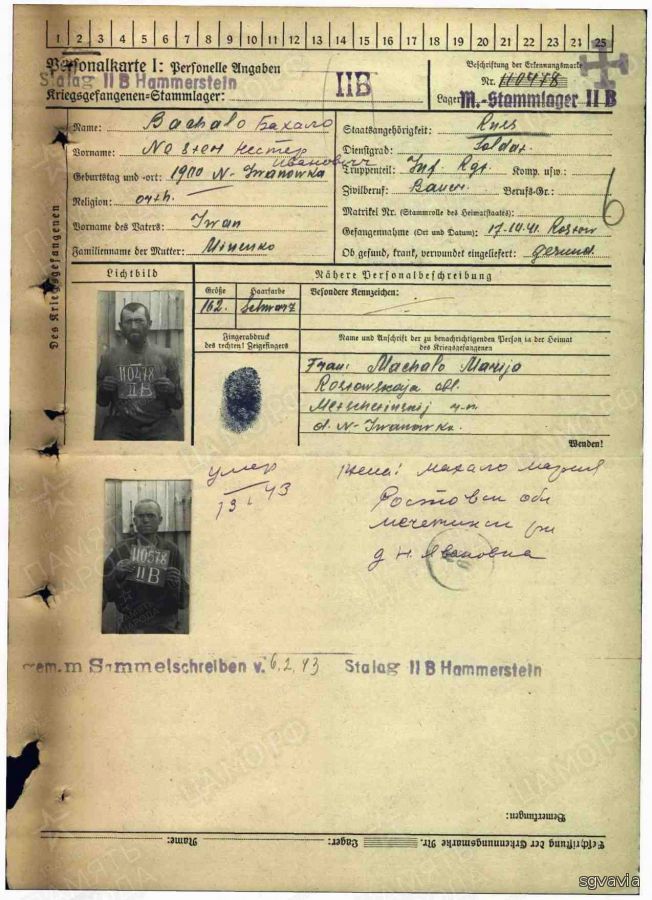 1 2 3 4 5 6 7 8 9 10 11 12 13 14 15 16 17 18 19 20 21 22 23 24 25
Personalkarte I: Personelle Angaben
Stalag II B Hammerstein
Kriegsgefangenen=Stammlager:
IIB
Beschriftung der Erkennungsmarke
Nr. 110478
Lager: M.-Stammlager II B
Des Kriegsgefangenen
Name: Bachalo Бахало
Vorname: Nester Нестер
Иванович
Geburtstag und =ort: 1900 N-Iwanowka
Religion: orth.
Vorname des Vaters: Iwan
Familienname der Mutter: Minenko
Staatsangehörigkeit: Russ
Dienstgrad: Soldat
Truppenteil: Inf. Rgt. Komp. usw.:
Zivilberuf: Bauer Berufs-Gr.: 6
Matrikel Nr. (Stammrolle des Heimatstaates):
Gefangennahme (Ort und Datum): 17.10.41. Rostow
Ob gesund, krank, verwundet eingeliefert: gesund.
Lichtbild
Nähere Personalbeschreibung
Größe
Haarfarbe
Besondere Kennzeichen:
162. Schwarz
Fingerabdruck
des rechten! Zeigefingers
Name und Anschrift der zu benachrichtigenden Person in der Heimat
des Kriegsgefangenen
Frau: Machalo Marija
Rostowskaja obl.
Metschetinskij r-n.
d. N-Iwanowka.
Wenden!
110478
II B
умер
13 I 43
жена: махало мария
Ростовск обл
мечетинск рн
д Н Ивановка
110578
II B
gem. m Sammelschreiben v. 6.2.43 Stalag II B Hammerstein
Bemerkungen:
Beschriftung der Erkennungsmarke Nr. Lager: Name:
ПАМЯТЬ
НАРОДА
ЦАМО РФ
sgvavia